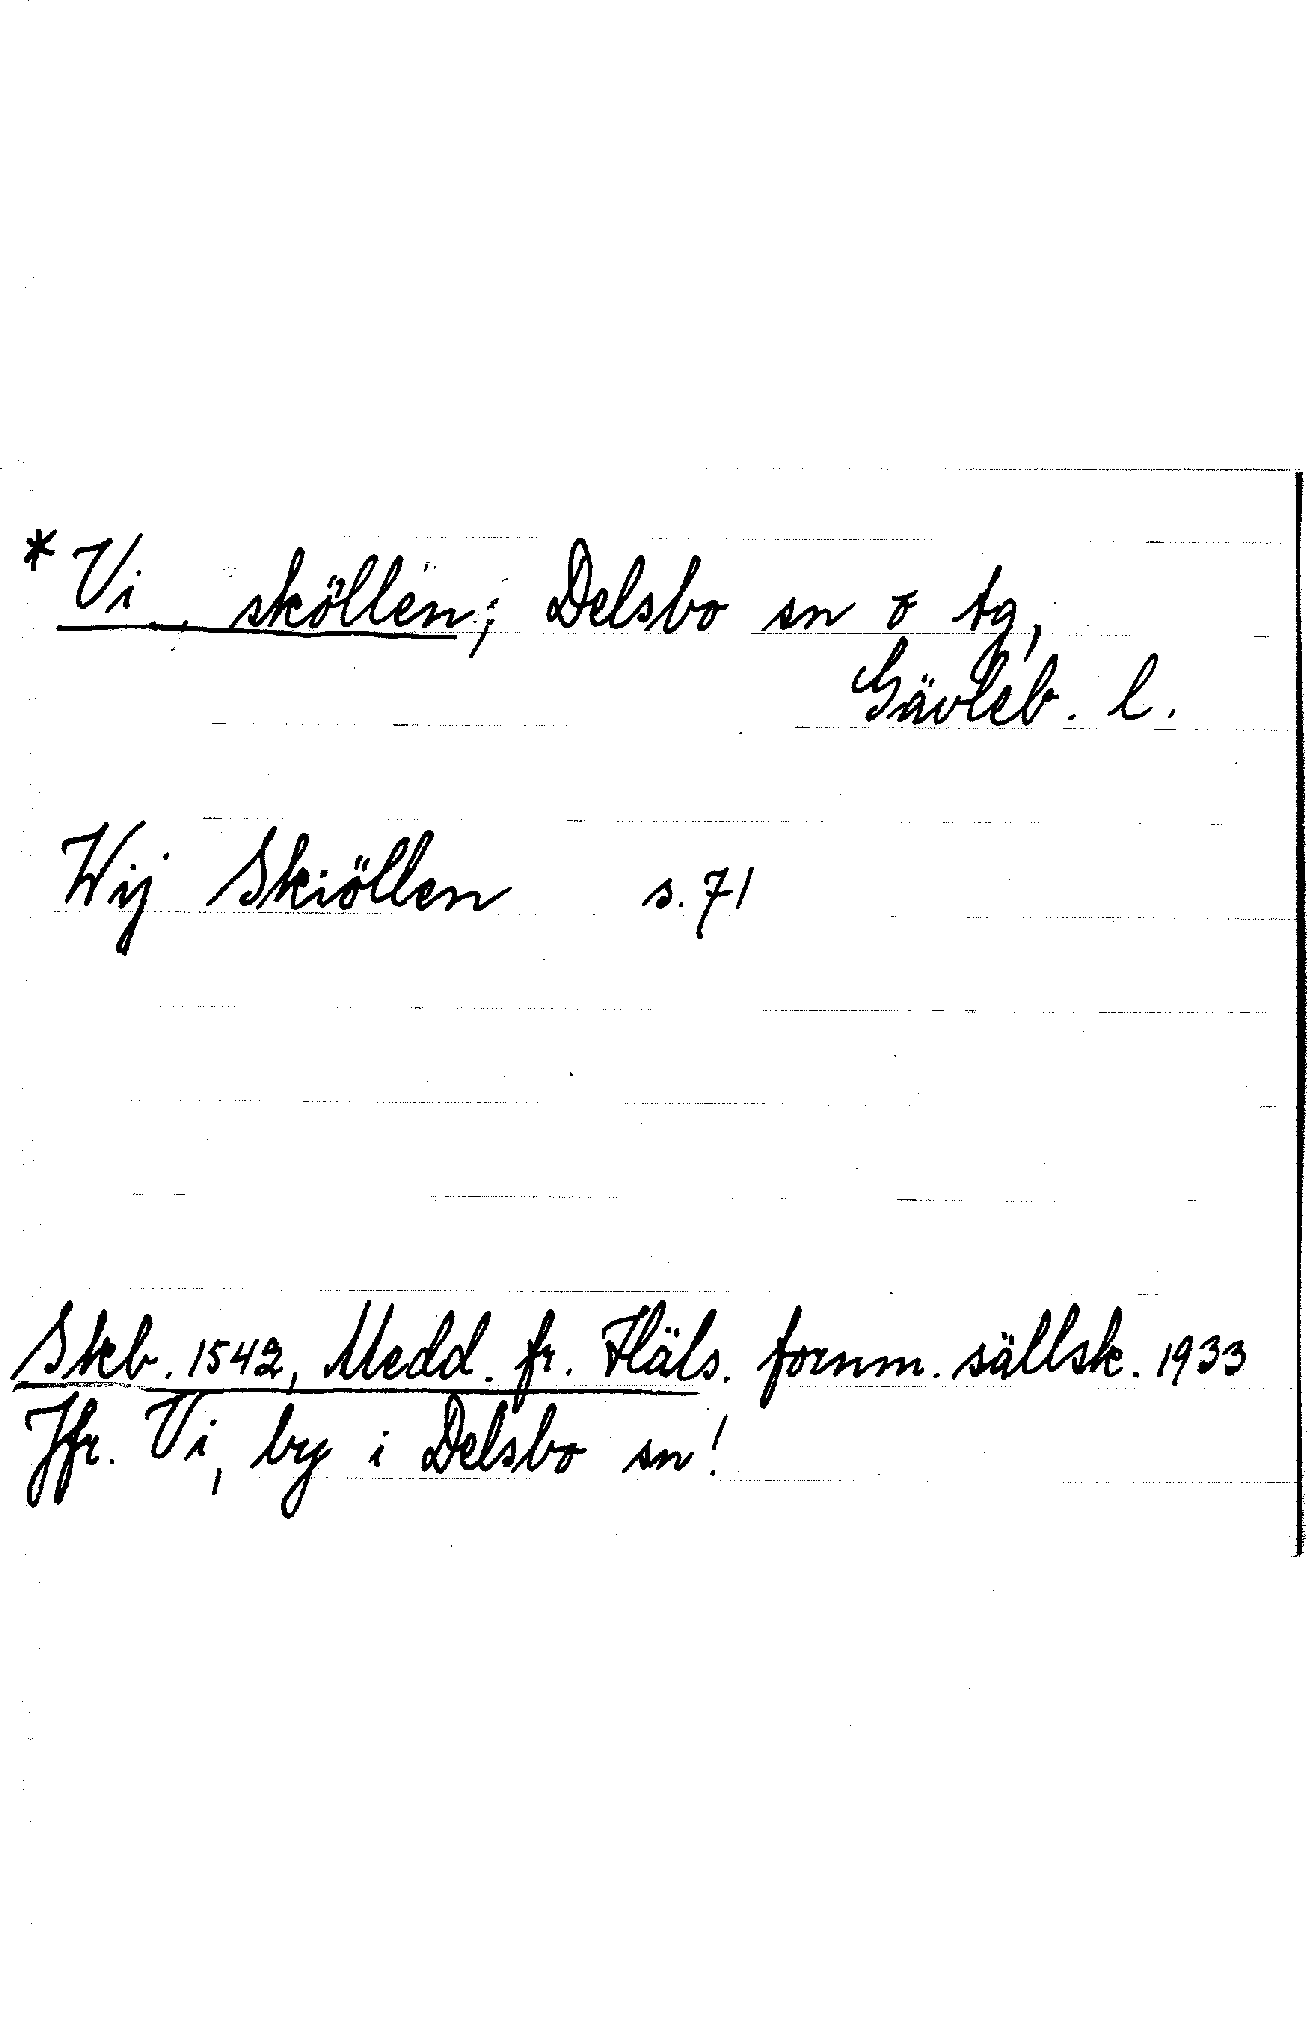 *Vi sköllen; Delsbo sn o tg,
Gävleb. l.
Wij Skiöllen s. 71
Skb. 1542, Medd. fr. Häls. fornm. sällsk. 1933
Jfr. Vi, by i Delsbo sn!